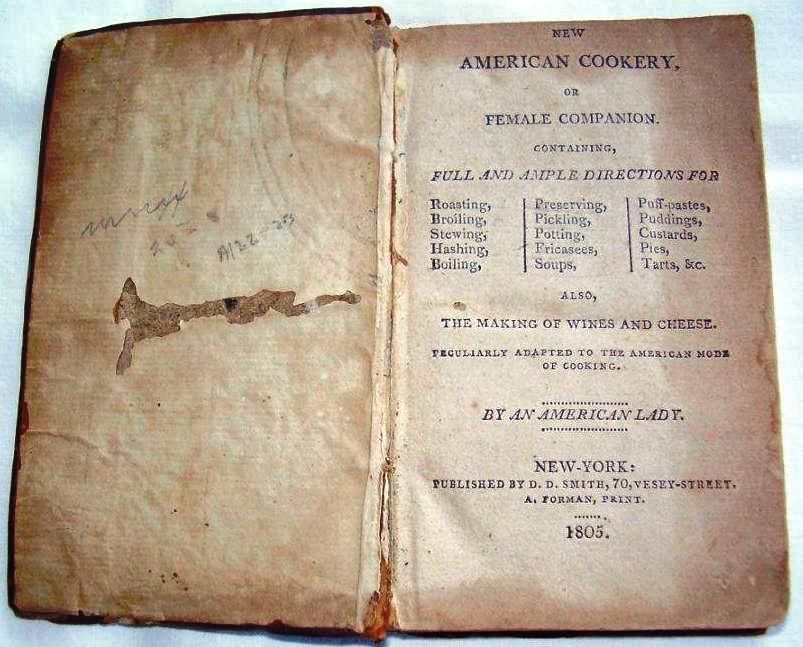 A122-25
NEW
AMERICAN COOKERY,
OR
FEMALE COMPANION.
CONTAINING,
FULL AND AMPLE DIRECTIONS FOR
Roasting,
Broiling,
Stewing,
Hashing,
Boiling,
Preserving,
Pickling,
Potting,
Fricasees,
Soups,
Puff-pastes,
Puddings,
Custards,
Pies,
Tarts, &c.
ALSO,
THE MAKING OF WINES AND CHEESE.
PECULIARLY ADAPTED TO THE AMERICAN MODE
OF COOKING.
BY AN AMERICAN LADY.
NEW-YORK:
PUBLISHED BY D. D. SMITH, 70, VESEY-STREET.
A. FORMAN, PRINT.
1805.